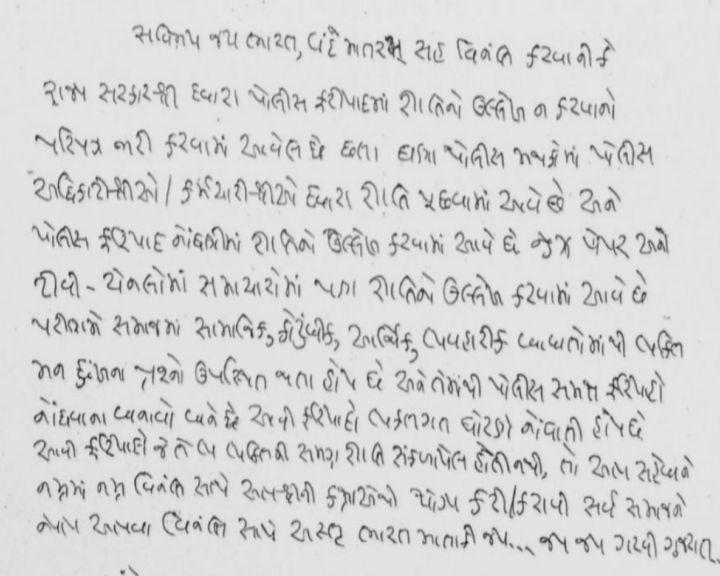 સવિનય જય ભારત, વંદે માતરમ્ સહ વિનંતિ કરવાની કે
રાજ્ય સરકારશ્રી દ્વારા પોલીસ ફરીયાદમાં જ્ઞાતિનો ઉલ્લેખ ન કરવાનો
પરિપત્ર જારી કરવામાં આવેલ છે છતા ઘણા પોલીસ મથકોમાં પોલીસ
અધિકારીશ્રીઓ/કર્મચારીશ્રીઓ દ્વારા જ્ઞાતિ પૂછવામાં આવે છે અને
પોલીસ ફરિયાદ નોંધણીમાં જ્ઞાતિનો ઉલ્લેખ કરવામાં આવે છે તેમજ પેપર અને
ટીવી - ચેનલોમાં સમાચારોમાં પણ જ્ઞાતિનો ઉલ્લેખ કરવામાં આવે છે
પરીણામે સમાજમાં સામાજિક, કૌટુંબીક, આર્થિક, વ્યવહારીક બાબતોમાંથી વ્યક્તિ
મન દુઃખના પ્રશ્નો ઉપસ્થિત થતા હોય છે અને તેમાંથી પોલીસ સમક્ષ ફરિયાદો
નોંધાવાના બનાવો બને છે આવી ફરિયાદો વ્યક્તિગત ધોરણે નોંધાતી હોય છે
આવી ફરિયાદો જે તે વ્યક્તિની સમગ્ર જ્ઞાતિ સંકળાયેલ હોતી નથી, તો આપ સાહેબને
નમ્રમાં નમ્ર વિનંતિ સાથે આપશ્રીની કક્ષાએથી યોગ્ય કરી/કરાવી સર્વ સમાજને
ન્યાય આપવા વિનંતિ સાથે અસ્તુ ભારત માતાકી જય... જય જય ગરવી ગુજરાત.